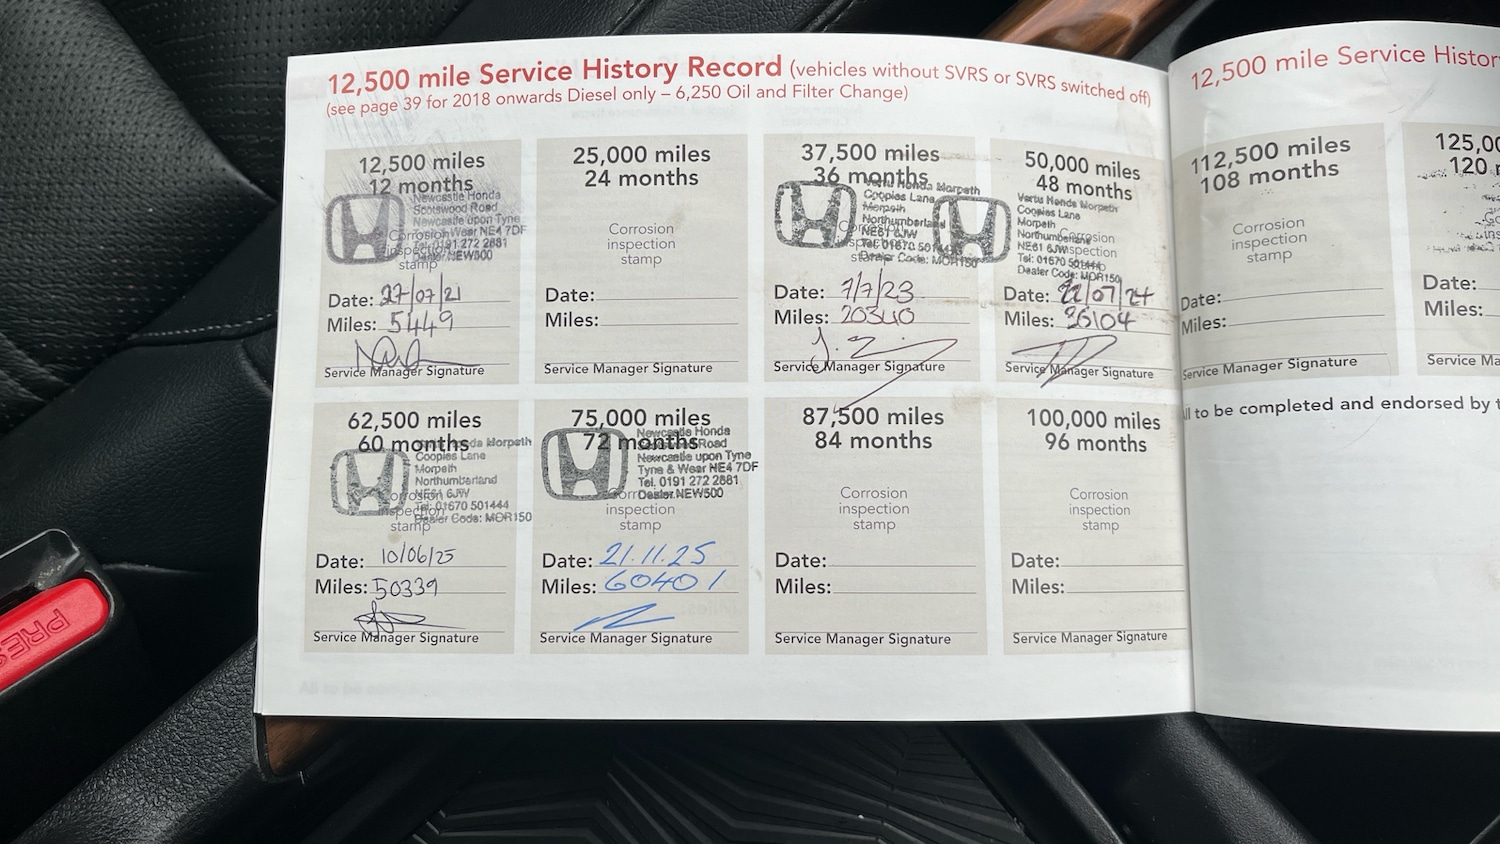 12,500 mile Service History Record (vehicles without SVRS or SVRS switched off)
(see page 39 for 2018 onwards Diesel only – 6,250 Oil and Filter Change)
12,500 miles
12 months
Newcastle Honda
Scotswood Road
Newcastle upon Tyne
Wear NE4 7DF
Tel. 0191 272 2681
Dealer NEW500
Corrosion
inspection
stamp
Date: 27/07/21
Miles: 5449
Service Manager Signature
25,000 miles
24 months
Corrosion
inspection
stamp
Date:
Miles:
Service Manager Signature
37,500 miles
36 months
Vertu Honda Morpeth
Cooples Lane
Morpeth
Northumberland
NE61 6JW
Tel: 01670 501444
Dealer Code: MOR150
Date: 7/7/23
Miles: 20340
Service Manager Signature
50,000 miles
48 months
Vertu Honda Morpeth
Cooples Lane
Morpeth
Northumberland
NE61 6JW
Tel: 01670 501444
Dealer Code: MOR150
Corrosion
inspection
Date: 22/07/24
Miles: 36104
Service Manager Signature
62,500 miles
60 months
Honda Morpeth
Cooples Lane
Morpeth
Northumberland
NE61 6JW
Tel: 01670 501444
Dealer Code: MOR150
Corrosion
inspection
stamp
Date: 10/06/25
Miles: 50339
Service Manager Signature
75,000 miles
72 months
Newcastle Honda
Road
Newcastle upon Tyne
Tyne & Wear NE4 7DF
Tel. 0191 272 2681
Dealer NEW500
Corrosion
inspection
stamp
Date: 21.11.25
Miles: 60401
Service Manager Signature
87,500 miles
84 months
Corrosion
inspection
stamp
Date:
Miles:
Service Manager Signature
100,000 miles
96 months
Corrosion
inspection
stamp
Date:
Miles:
Service Manager Signature
12,500 mile Service Histor
112,500 miles
108 months
Corrosion
inspection
stamp
Date:
Miles:
Service Manager Signature
125,00
120
Date:
Miles:
Service Ma
ll to be completed and endorsed by t
PRES